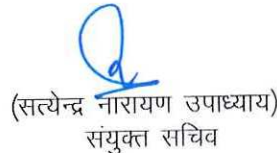 (सत्येन्द्र नारायण उपाध्याय)
संयुक्त सचिव